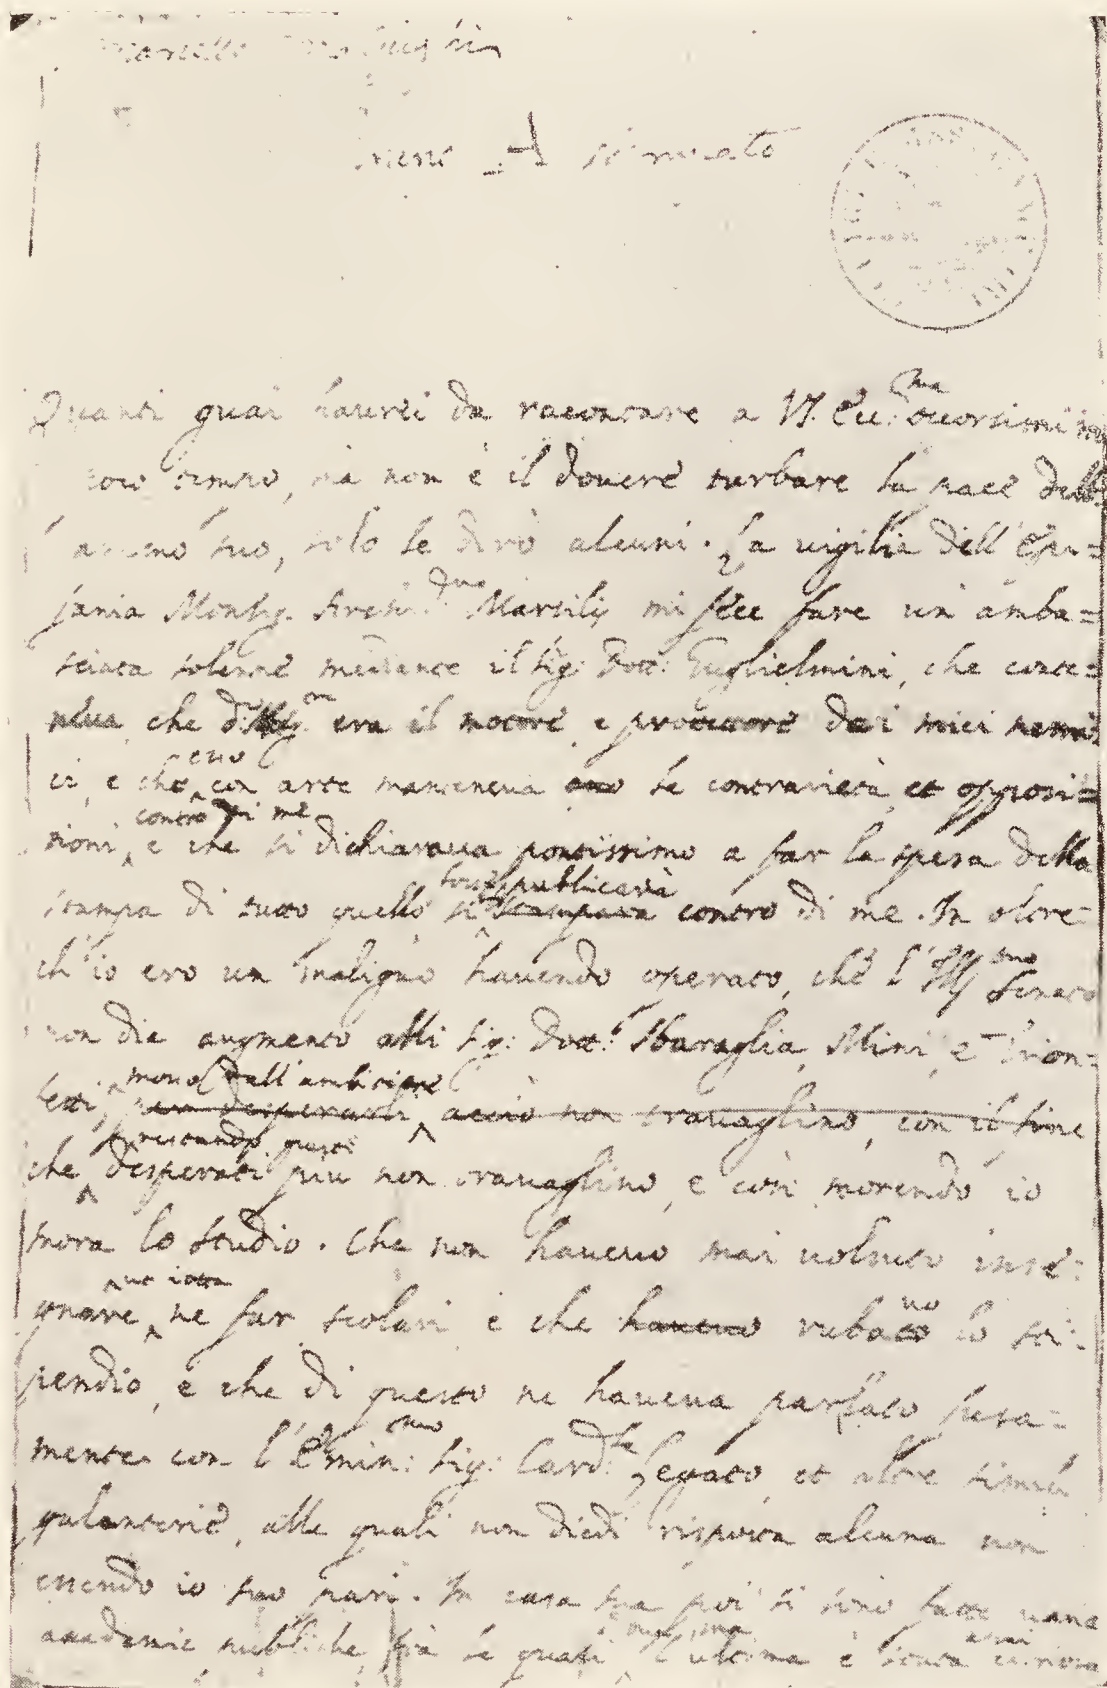 Quanti guai haurei da racontare a V.S. Ecc.ma occorsimi in
poco tempo, ma non è il douere turbare la pace dell
animo suo, solo le dirò alcuni. La uigilia dell' Epi=
fania Monsig. Arcid. Marsilij mi fece fare un' amba=
sciata solenne mediante il Sig. Dott: Guglielmini, che conte=
neua, che era il motore e protettore dei miei nemi
ci, e che esso con arte manteneua le contrarietà, et opposi=
tioni, contro di me e che si dichiaraua prontissimo a far la spesa della
stampa di tutto quello si fosse publicaria stampaua contro di me. In oltre
ch' io ero un maligno hauendo operato, che l' Ill.mo Senato
non die augmento alli Sig: Dott.i Sbaraglia, Mini, e Trion=
fetti, mosso dall' ambitione per desperarli, acciò non trauaglino, con il fine
che restando questi desperati più non trauaglino, e così morendo io
mora lo studio. Che non haueuo mai uoluto inse=
gnare, ne far scolari e che haueuo rubato lo sti=
pendio, e che di questo ne haueua parlato seria=
mente con l' Emin:mo Sig: Card:le Legato, et altre simili
galanterie, alle quali non diedi risposta alcuna non
essendo io suo pari. In casa sua poi si sono fatte uarie
academie publiche frà le quali l' ultima è stata curiosa